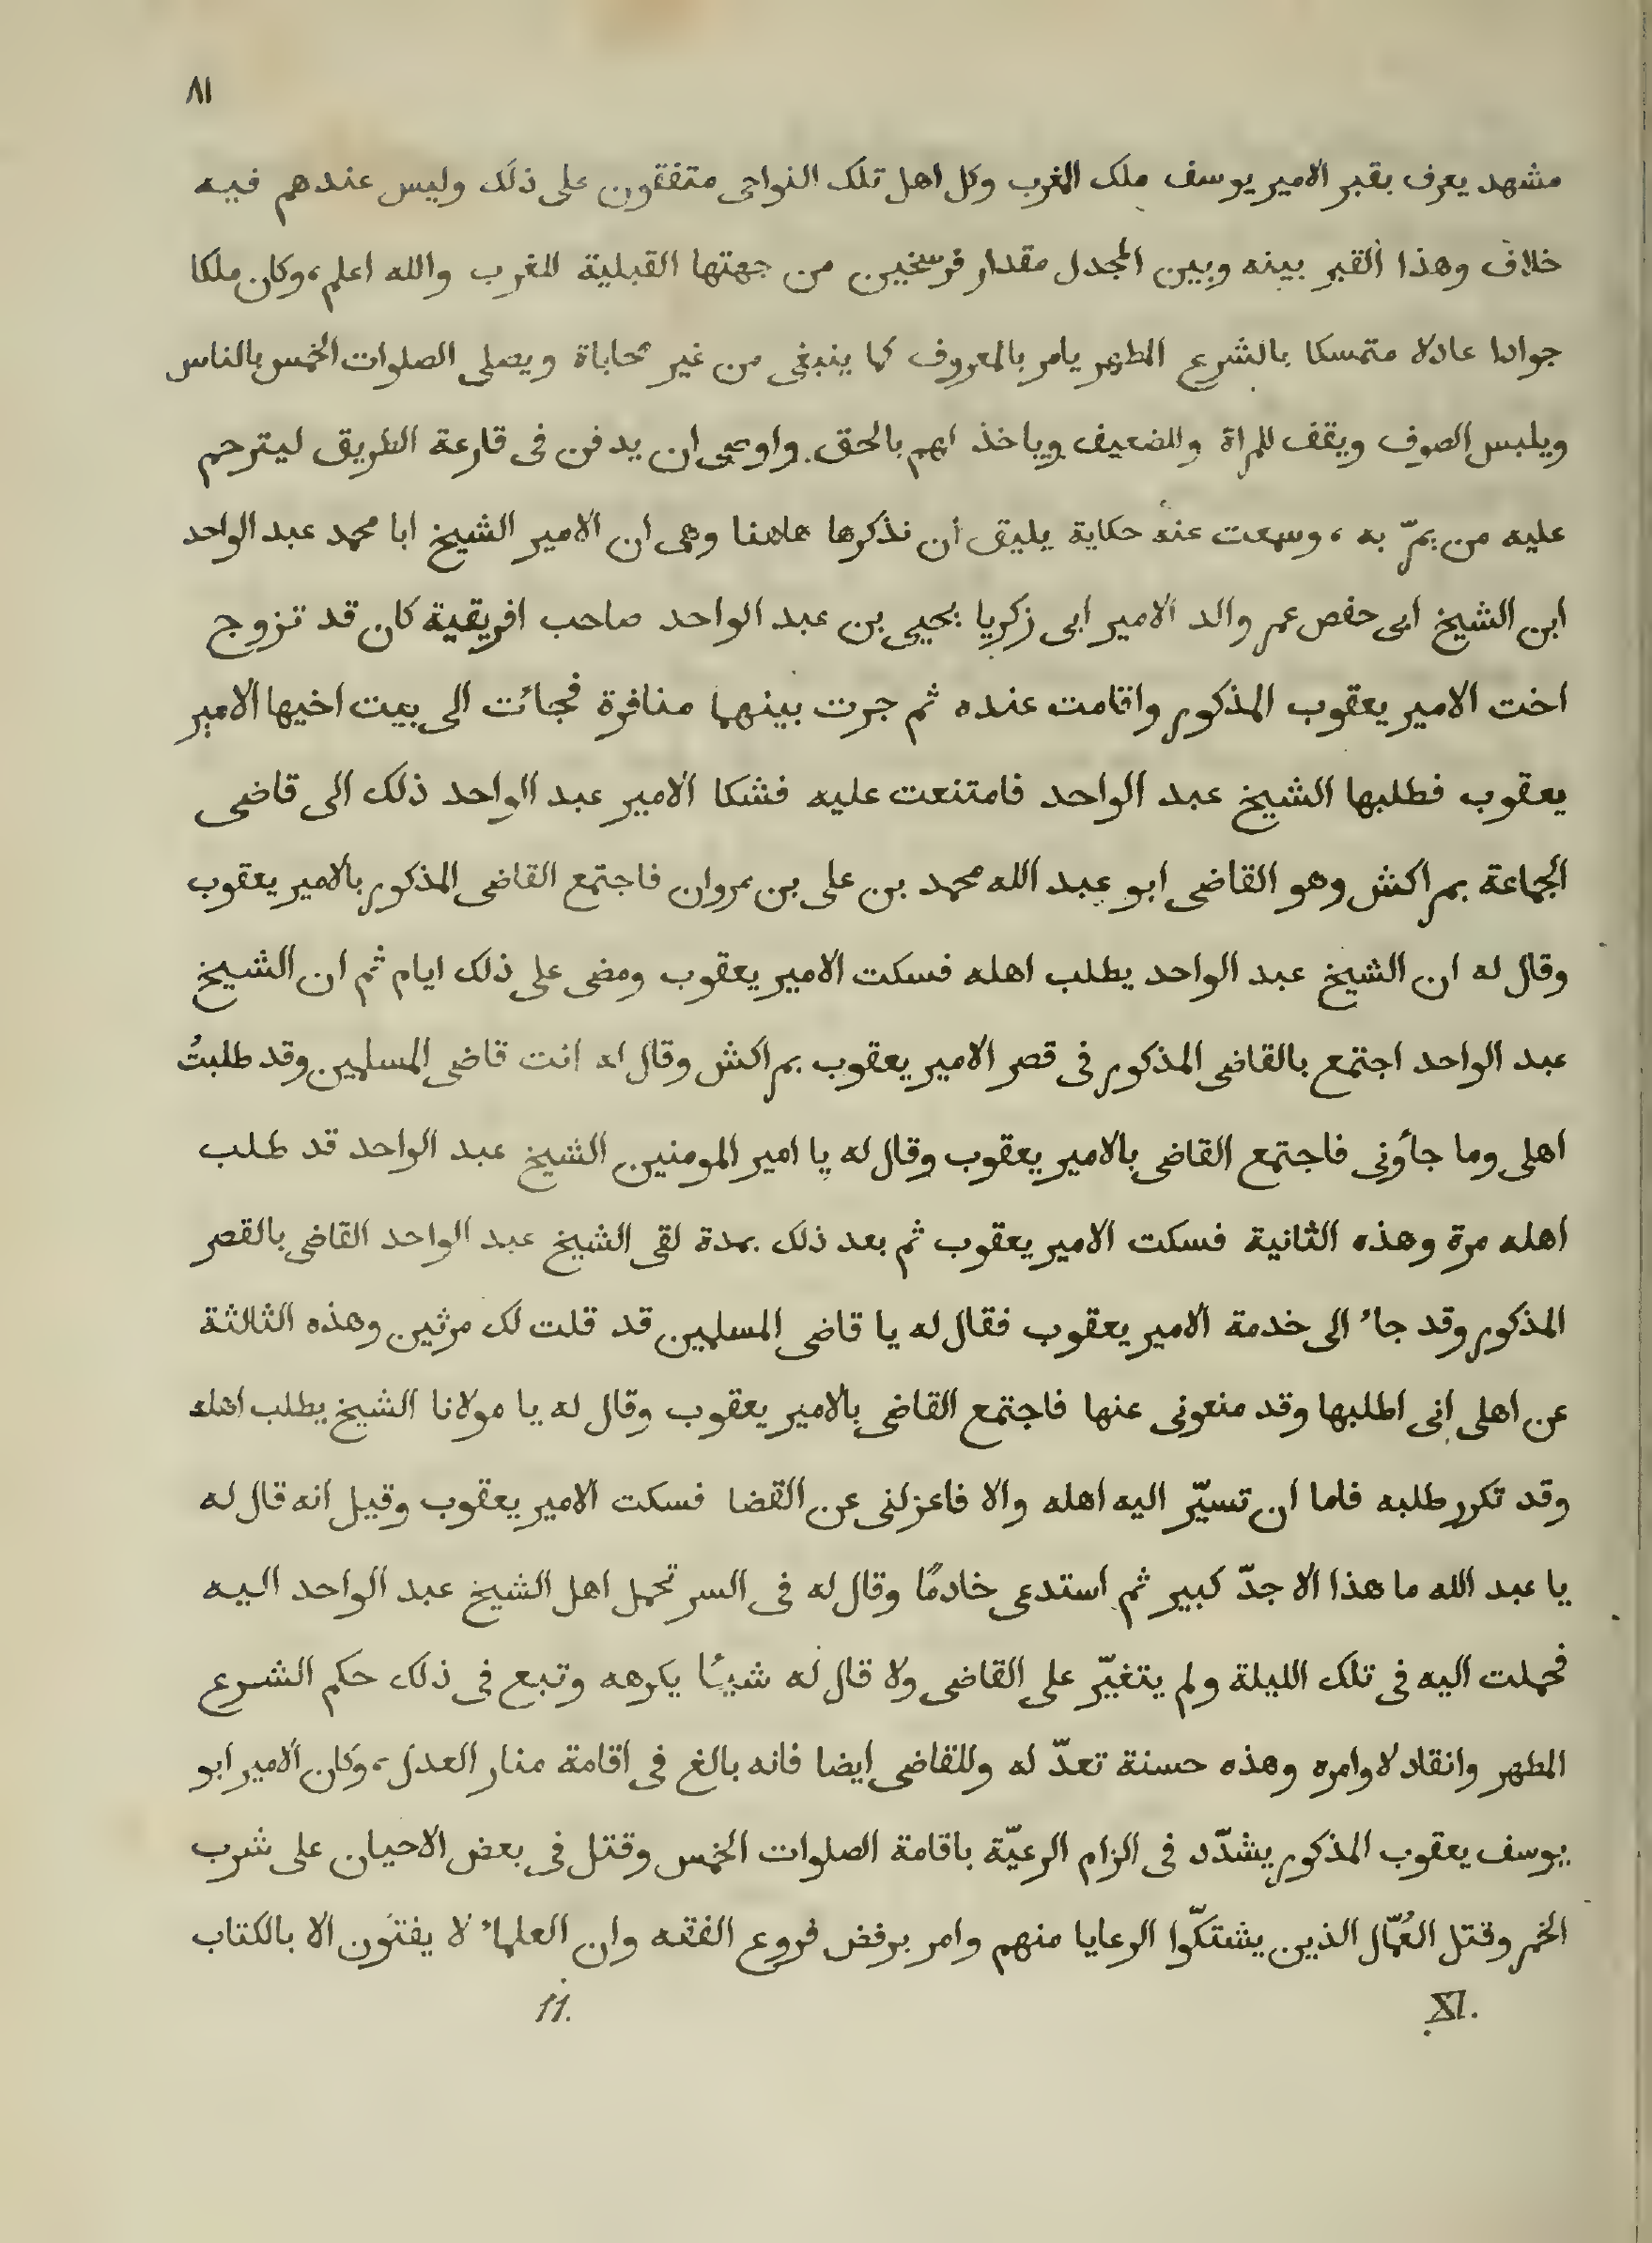 ٨١
مشهد يعرف بقبر الامير يوسف ملك المغرب وكل اهل تلك النواحى متفقون على ذلك وليس عندهم فيه
خلاف وهذا القبر بينه وبين المجدل مقدار فرسخين من جهتها القبلية للغرب والله اعلم، وكان ملكا
جوادا عادلا متمسكا بالشرع المطهر يامر بالمعروف كما ينبغى من غير محاباة ويصلى الصلوات الخمس بالناس
ويلبس الصوف ويقف للمراة والضعيف وياخذ لهم بالحق. واوصى ان يدفن فى قارعة الطريق ليترحم
عليه من يمرّ به، وسمعت عنه حكاية يليق أن نذكرها هاهنا وهى ان الامير الشيخ ابا محمد عبد الواحد
ابن الشيخ ابى حفص عمر والد الامير ابى زكريا يحيى بن عبد الواحد صاحب افريقية كان قد تزوج
اخت الامير يعقوب المذكور واقامت عنده ثم جرت بينهما منافرة فجائت الى بيت اخيها الامير
يعقوب فطلبها الشيخ عبد الواحد فامتنعت عليه فشكا الامير عبد الواحد ذلك الى قاضى
الجماعة بمراكش وهو القاضى ابو عبد الله محمد بن على بن مروان فاجتمع القاضى المذكور بالامير يعقوب
وقال له ان الشيخ عبد الواحد يطلب اهله فسكت الامير يعقوب ومضى على ذلك ايام ثم ان الشيخ
عبد الواحد اجتمع بالقاضى المذكور فى قصر الامير يعقوب بمراكش وقال له انت قاضى المسلمين وقد طلبتُ
اهلى وما جأونى فاجتمع القاضى بالامير يعقوب وقال له يا امير المومنين الشيخ عبد الواحد قد طلب
اهله مرة وهذه الثانية فسكت الامير يعقوب ثم بعد ذلك بمدة لقى الشيخ عبد الواحد القاضى بالقصر
المذكور وقد جاء الى خدمة الامير يعقوب فقال له يا قاضى المسلمين قد قلت لك مرثين وهذه الثالثة
عن اهلى انى اطلبها وقد منعونى عنها فاجتمع القاضى بالامير يعقوب وقال له يا مولانا الشيخ يطلب اهله
وقد تكرر طلبه فاما ان تسيّر اليه اهله والا فاعزلنى عن القضا فسكت الامير يعقوب وقيل انه قال له
يا عبد الله ما هذا الا جدّ كبير ثم استدعى خادمًا وقال له فى السر تحمل اهل الشيخ عبد الواحد اليه
فحملت اليه فى تلك الليلة ولم يتغيّر على القاضى ولا قال له شيئا يكرهه وتبع فى ذلك حكم الشرع
المطهر وانقاد لاوامره وهذه حسنة تعدّ له وللقاضى ايضا فانه بالغ فى اقامة منار العدل، وكان الامير ابو
يوسف يعقوب المذكور يشدّد فى الزام الرعيّة باقامة الصلوات الخمس وقتل فى بعض الاحيان على شرب
الخمر وقتل العُمّال الذين يشتكّوا الرعايا منهم وامر برفض فروع الفقه وان العلماء لا يفتون الا بالكتاب
XI. 11.